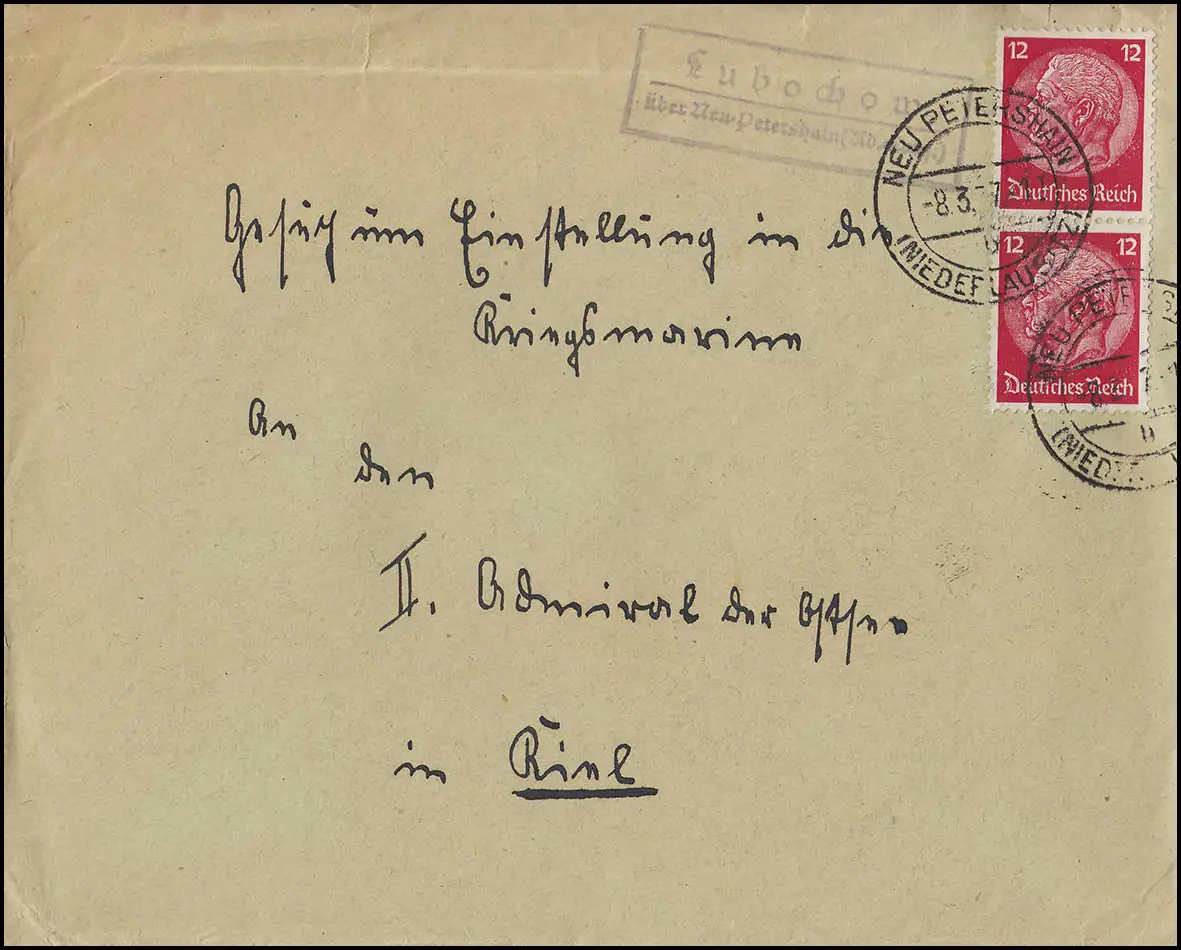 Lubochow
über Neu-Petershain
12 12
Deutsches Reich
NEU PETERSHAIN
-8.3.
b
(NIEDERLAUSITZ)
12 12
Deutsches Reich
NEU PE
b
(NIED
Gesuch um Einstellung in die
Kriegsmarine
An
den
II. Admiral der Ostsee
in Kiel